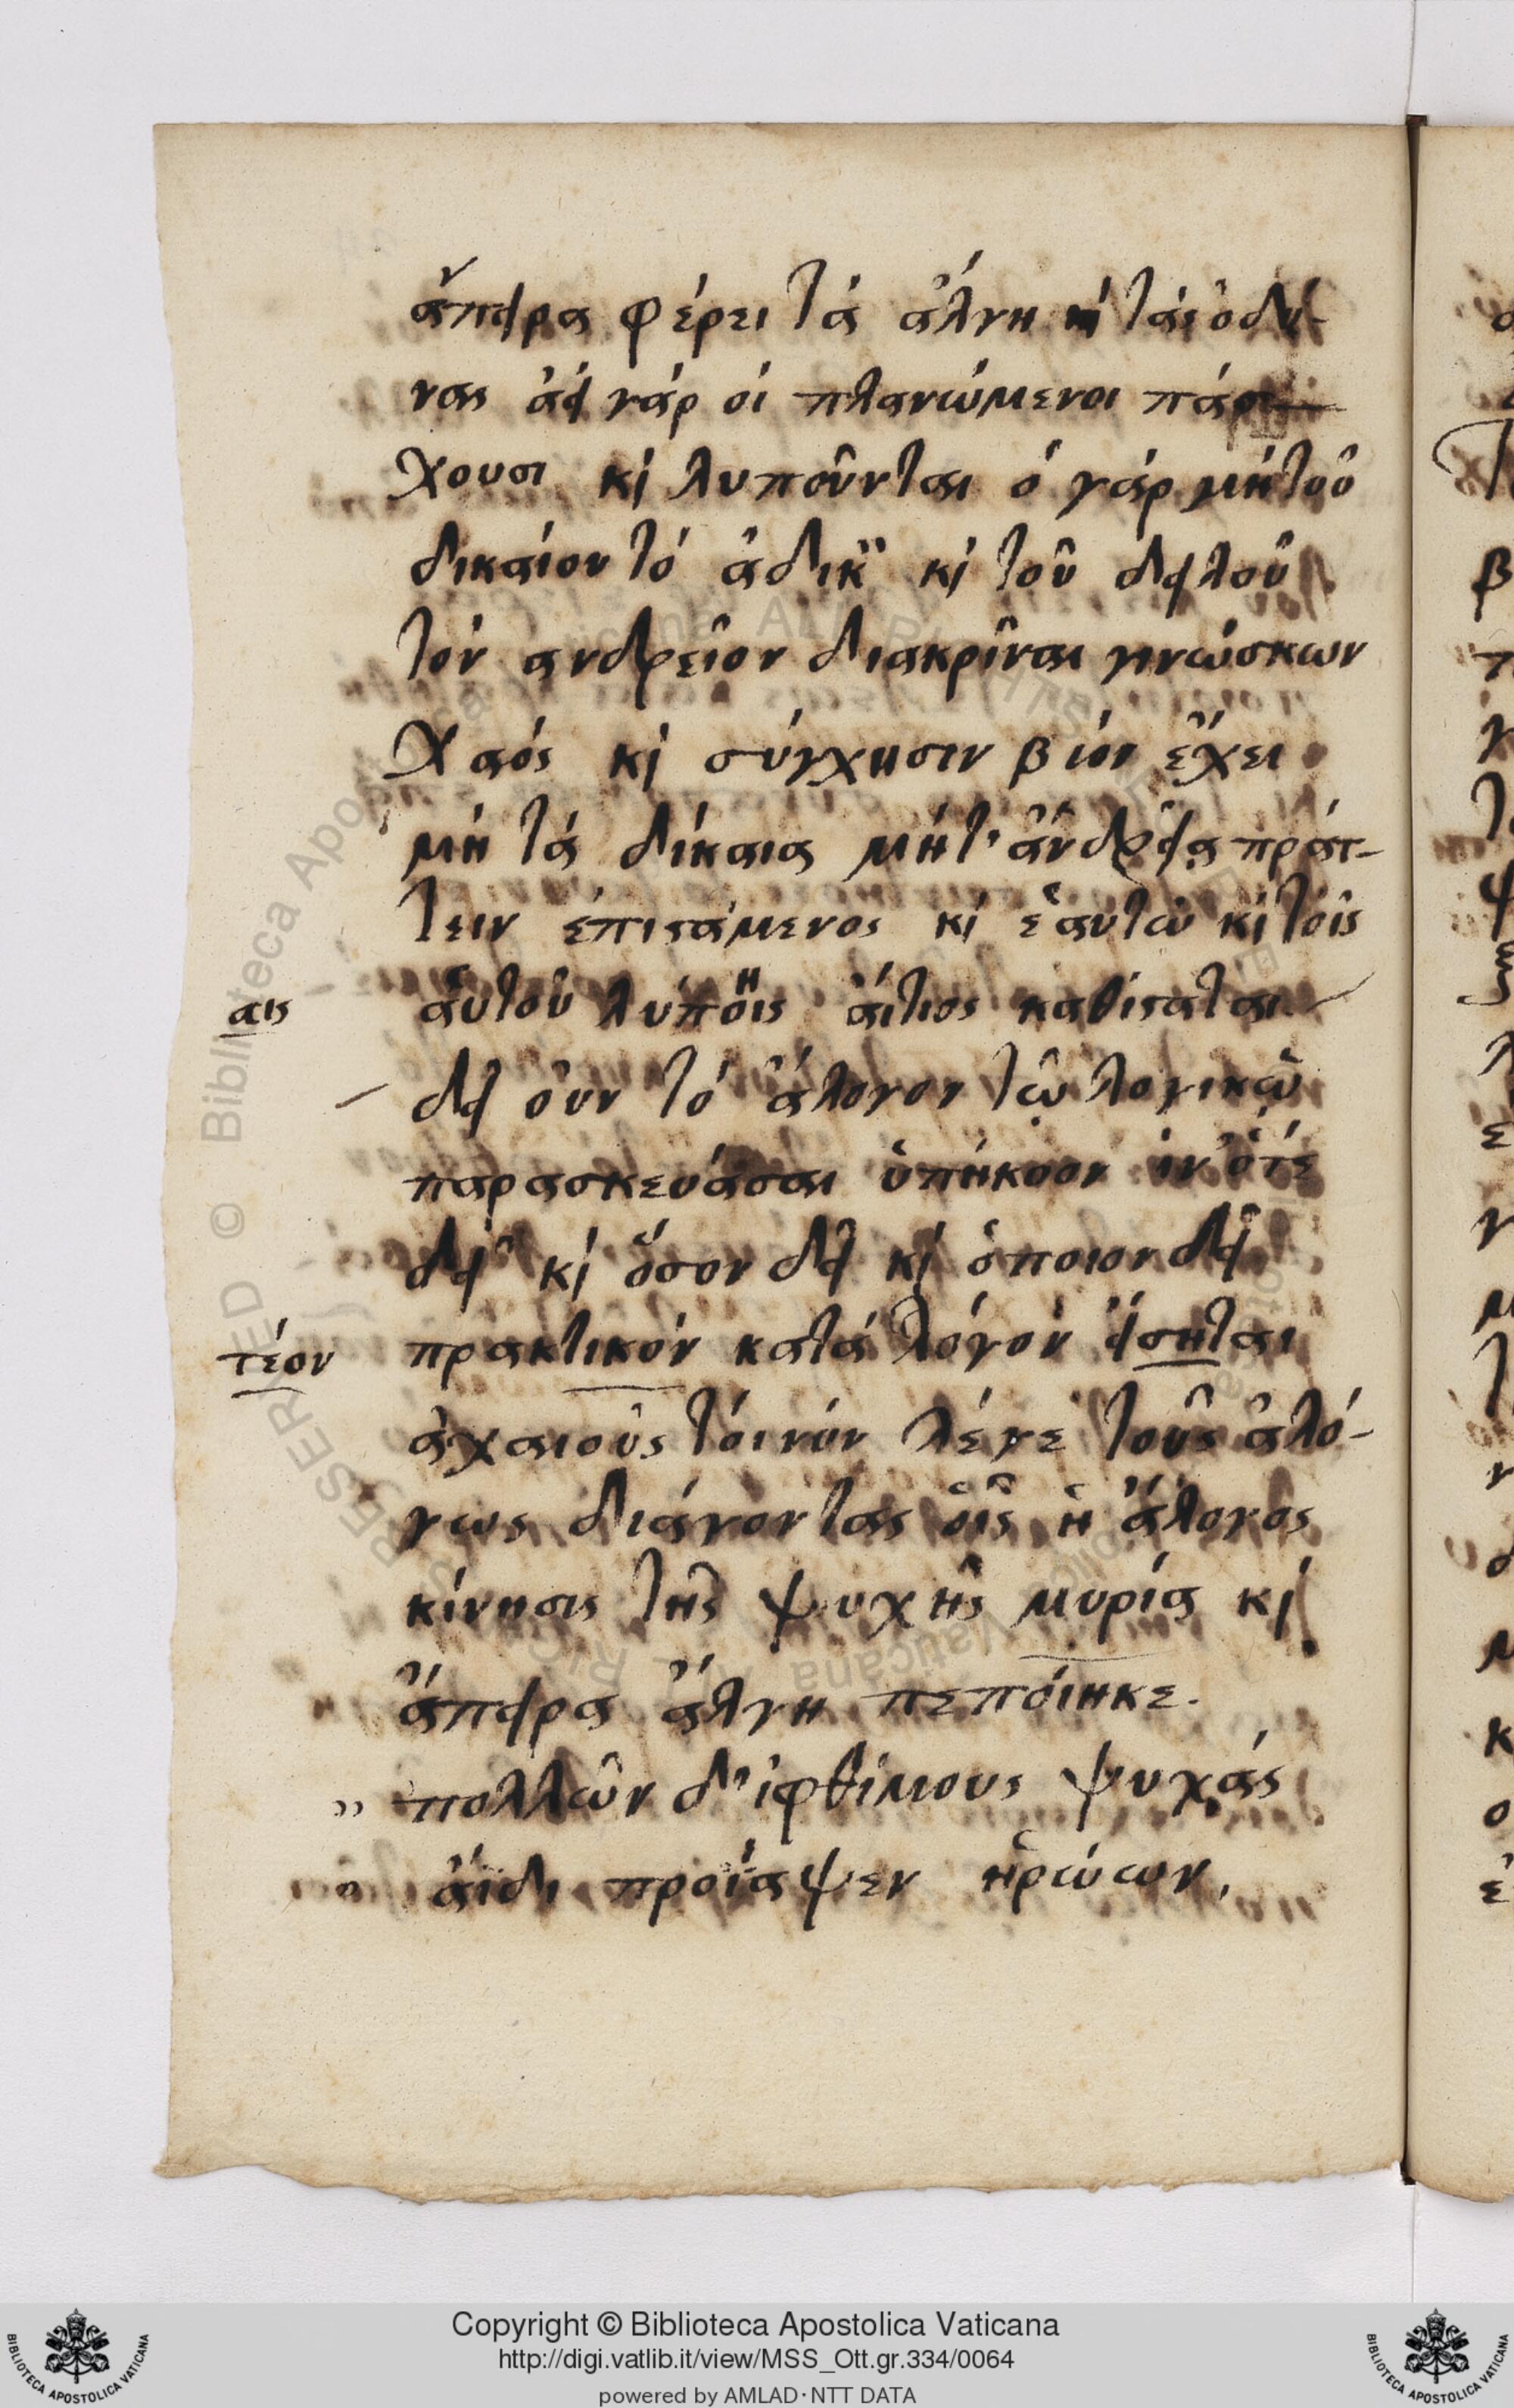 ἄπειρα φέρει τά ἄλγη ἢ τάς ὀδύ-
νας ἀεί γάρ οἱ πλανώμενοι πάσ-
χουσι κὶ λυποῦνται ὁ γάρ μή τοῦ
δικαίου τό ἄδικ κὶ τοῦ δειλοῦ
τόν ανδρεῖον διακρῖναι γινώσκων
χαός κὶ σύγχησιν βίον ἔχει
μή τά δίκαια μήτ' ἀνδρεῖα πράτ-
τειν ἐπιστάμενος κὶ ἑαυτῶ κὶ τοῖς
αις
ἀυτοῦ λύποις ἄιτιος καθίσταται
δεῖ οὖν τό ἄλογον τῶ λογικῶ
παρασκευάσαι ὑπήκοον ἱν' ὁτέ
δεῖ κὶ ὅσον δεῖ κὶ ὁποῖον δεῖ
τέον
πρακτικόν κατά λόγον ἔισηται
ἀχαιούς τοίνυν λέγε τοῦς ἀλό-
γως διάγοντας οἷς ἡ ἄλογος
κίνησις τῆς ψυχῆς μυρία κὶ
ἄπειρα ἄλγη πεποίηκε.
" πολλῶν δ' ἰφθίμους ψυχάς
" ἄιδι προΐαψεν ἡρώων,
Copyright © Biblioteca Apostolica Vaticana
http://digi.vatlib.it/view/MSS_Ott.gr.334/0064
powered by AMLAD·NTT DATA
BIBLIOTECA APOSTOLICA VATICANA
BIBLIOTECA APOSTOLICA VATICANA